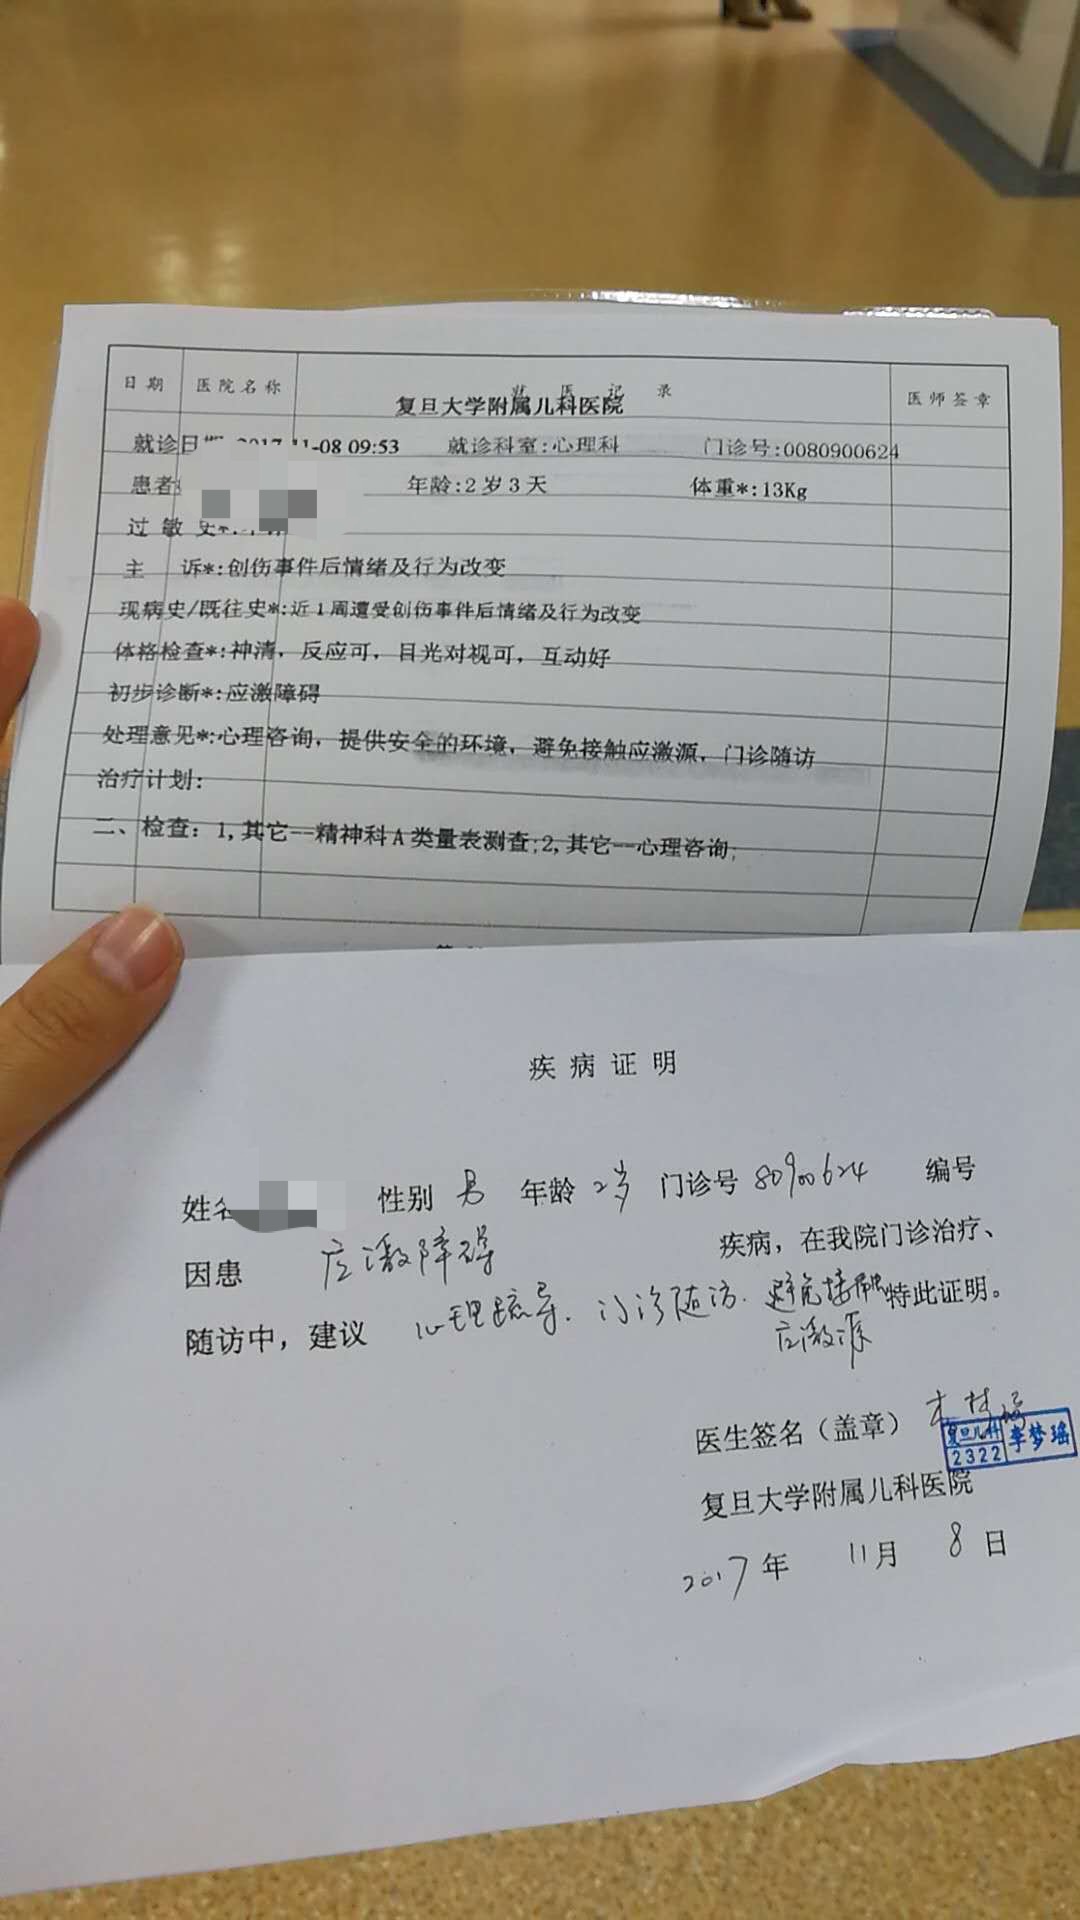 日期 医院名称 就医记录 医师签章
复旦大学附属儿科医院
就诊日期 2017-11-08 09:53 就诊科室:心理科 门诊号:0080900624
患者 年龄:2岁3天 体重*:13Kg
过敏史*:
主 诉*:创伤事件后情绪及行为改变
现病史/既往史*:近1周遭受创伤事件后情绪及行为改变
体格检查*:神清，反应可，目光对视可，互动好
初步诊断*:应激障碍
处理意见*:心理咨询，提供安全的环境，避免接触应激源，门诊随访
治疗计划:
二、检查：1,其它--精神科A类量表测查;2,其它--心理咨询;
疾病证明
姓名 性别 男 年龄 2岁 门诊号 80900624 编号
因患 应激障碍 疾病，在我院门诊治疗、
随访中，建议 心理疏导．门诊随访．避免接触 特此证明。
应激源
医生签名（盖章）
复旦儿科 李梦瑶
2322
复旦大学附属儿科医院
2017年 11月 8日